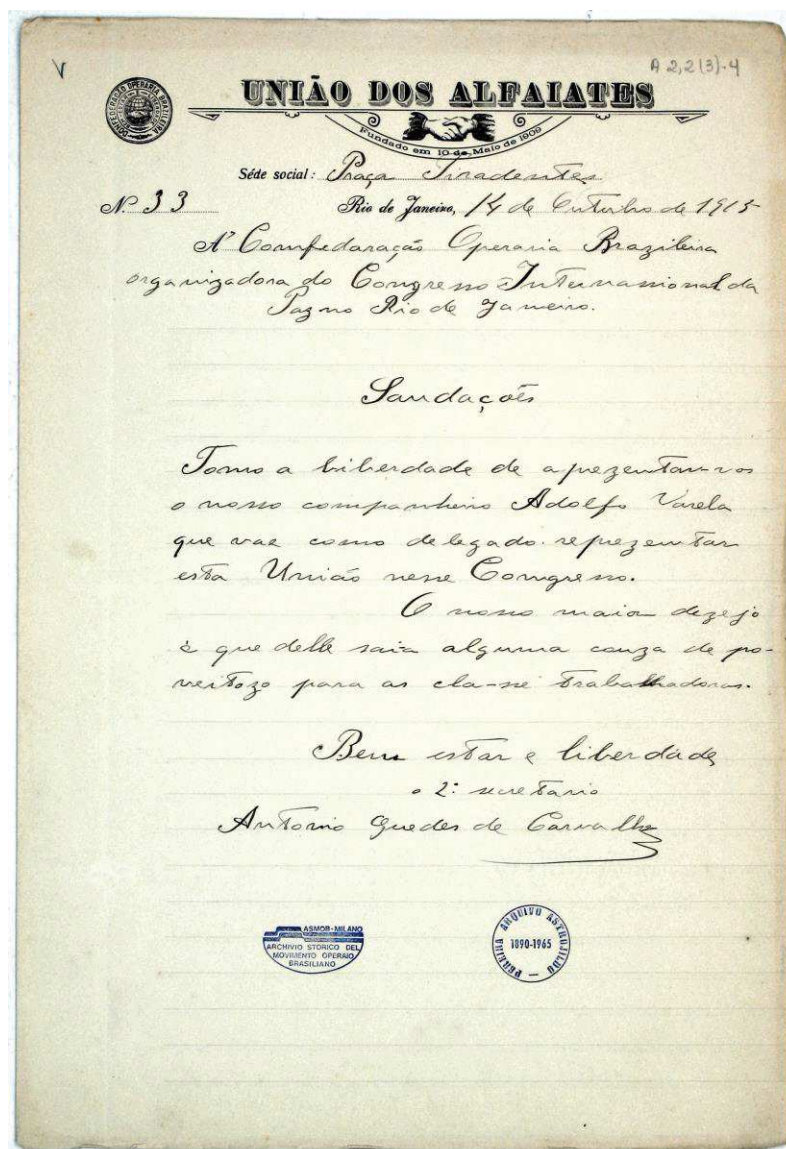 V
A 2,2(3)-4
CONFEDERAÇÃO OPERARIA BRAZILEIRA
UNIÃO DOS ALFAIATES
Fundado em 10 de Maio de 1909
Séde social: Praça Tiradentes
Nº 33 Rio de Janeiro, 14 de Outubro de 1915
A' Comfedaração Operaria Brazileira
organizadora do Congresso Internassional da
Paz no Rio de Janeiro.
Saudações
Tomo a liberdade de aprezentar-vos
o nosso companheiro Adolfo Varela
que vae como delegado reprezentar
esta União nesse Comgresso.
O nosso maior dezejo
é que delle saia alguma couza de po-
veitozo para as classe trabalhadoras.
Bem estar e liberdade
o 2º secretario
Antonio Guedes de Carvalho
ASMOB-MILANO
ARCHIVIO STORICO DEL
MOVIMENTO OPERAIO
BRASILIANO
ARQUIVO ASTROJILDO PEREIRA
1890-1965